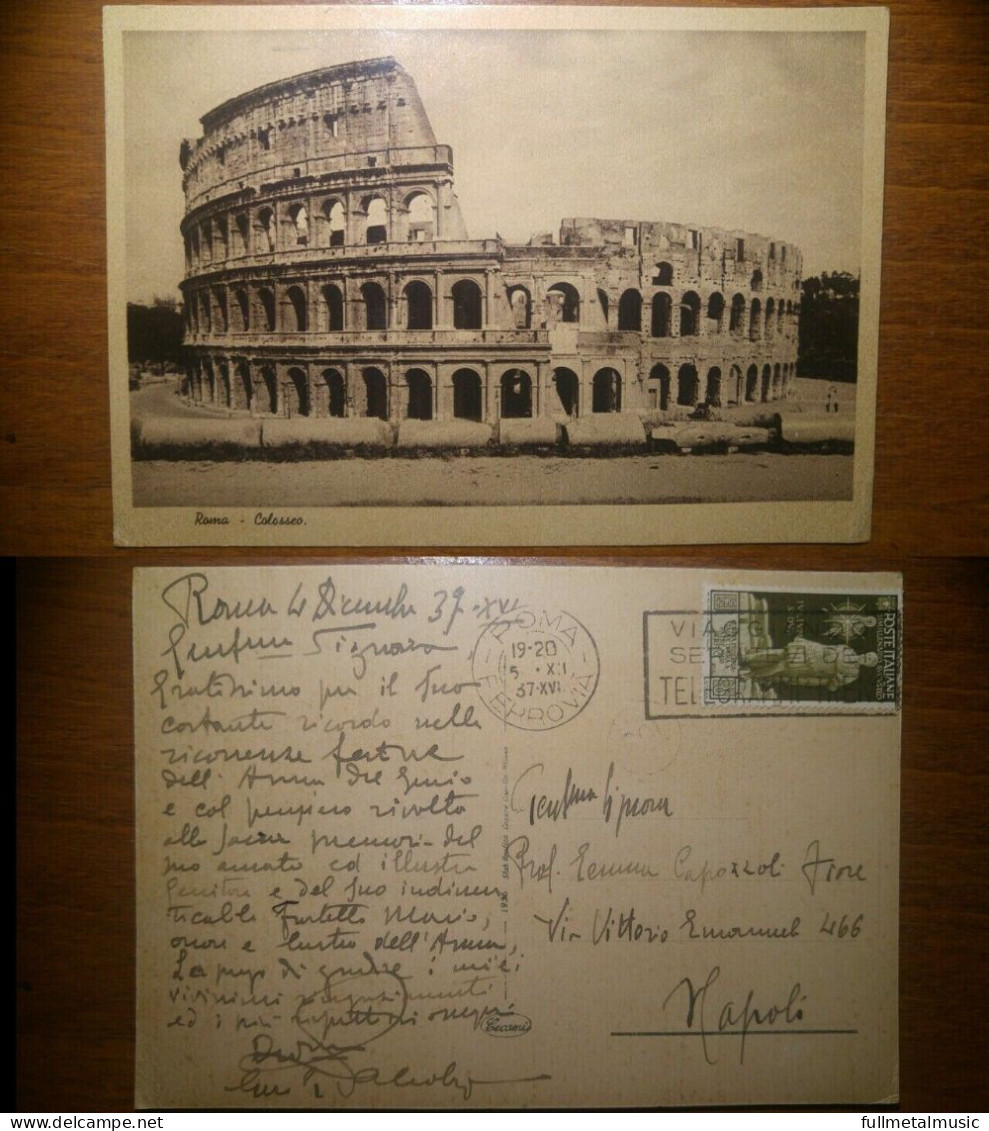 Roma - Colosseo.
Roma 4 Dicembre 37-XVI
Signora,
Gratissimo per il Suo
costante ricordo nella
ricorrenza
dell'Arma del Genio
e col pensiero rivolto
alla Sacra memoria del
Suo amato ed illustre
Genitore e del Suo indimen
ticabile Fratello Mario,
onore e lustro dell'Arma,
La prego di gradire i miei
vivissimi ringraziamenti
ed i più rispettosi ossequi
ROMA
19-20
5 XII
37·XVI
FERROVIA
POSTE ITALIANE
Signora
Prof. Emma Capozzoli Fiore
Via Vittorio Emanuele 466
Napoli
Cecami
Delcampe.net
fullmetalmusic